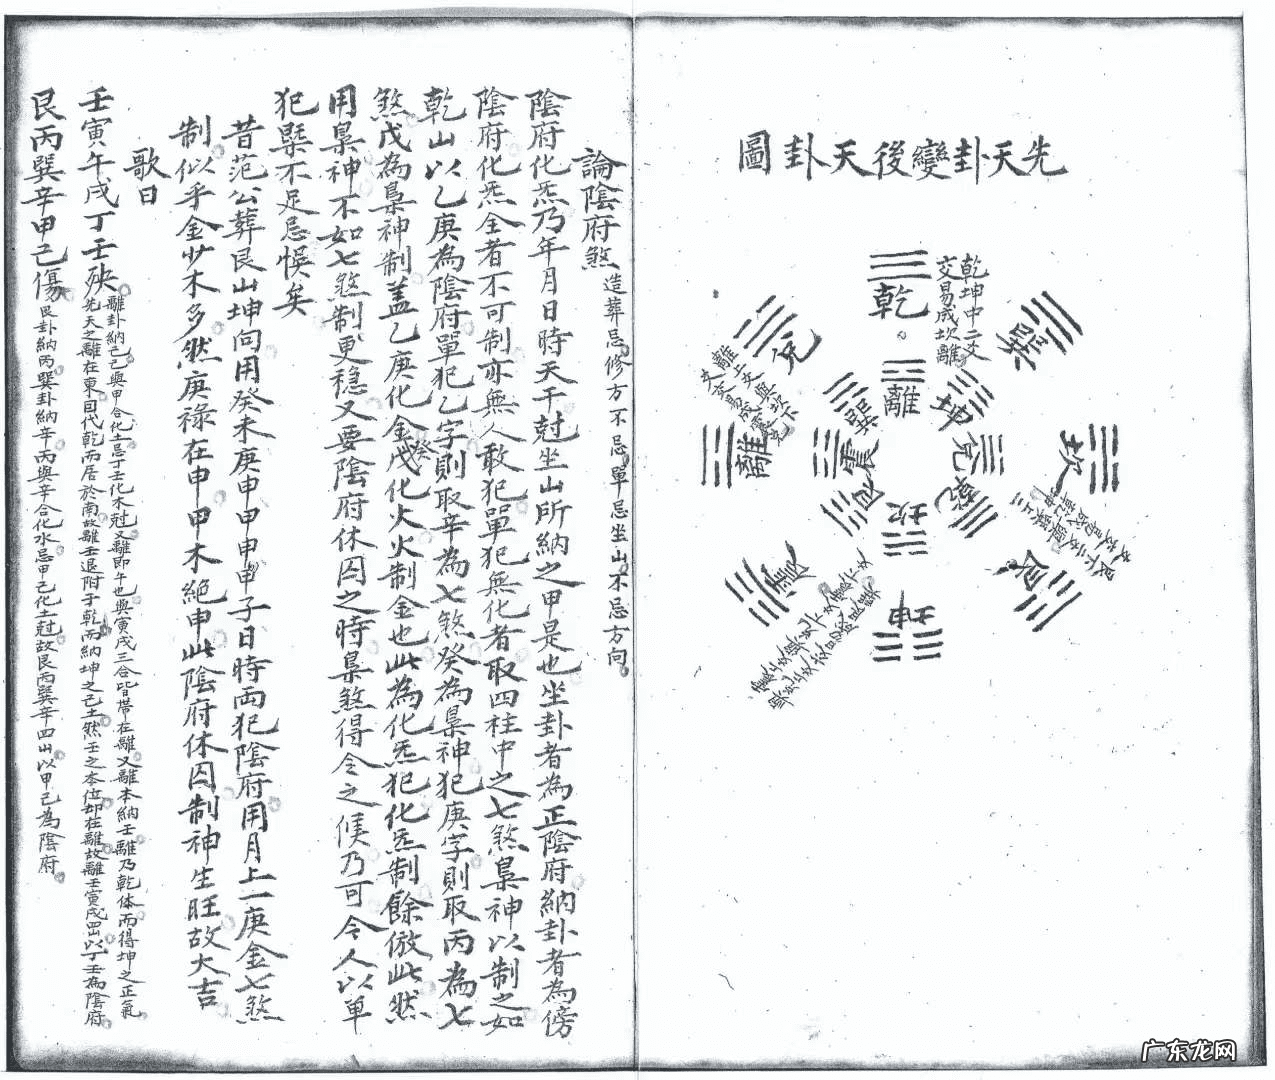 先天卦變後天卦圖
乾坤中二爻
交易成坎離
乾
兌
離
震
坤
艮
坎
巽
離
坤
兌
乾
坎
艮
震
巽
論陰府煞 造葬忌修方不忌單忌坐山不忌方向
陰府化炁乃年月日時天干尅坐山所納之甲是也坐卦者為正陰府納卦者為傍
陰府化炁全者不可制亦無人敢犯單犯無化者取四柱中之七煞梟神以制之如
乾山以乙庚為陰府單犯乙字則取辛為七煞癸為梟神犯庚字則取丙為七
煞戊為梟神制盖乙庚化金戊癸化火火制金也此為化炁犯化炁制餘倣此然
用梟神不如七煞制更穩又要陰府休囚之時梟煞得令之候乃可令人以單
犯槩不足忌悞矣
昔范公葬艮山坤向用癸未庚申甲申甲子日時両犯陰府用月上一庚金七煞
制似乎金少木多然庚祿在申甲木絕申此陰府休囚制神生旺故大吉
歌曰
壬寅午戌丁壬殃 離卦納己己與甲合化土忌丁壬化木尅又離即午也與寅戌三合皆帶在離又離本納壬離乃乾体而得坤之正氣
先天之離在東因代乾而居於南故離壬退附于乾而納坤之己土然壬之本位却在離故離壬寅戌四山以丁壬為陰府
艮丙巽辛甲己傷 艮卦納丙巽卦納辛丙與辛合化水忌甲己化土尅故艮丙巽辛四山以甲己為陰府
广东龙网